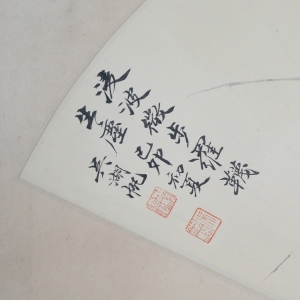 凌波微步羅韈
生塵 己卯初夏
吳湖帆